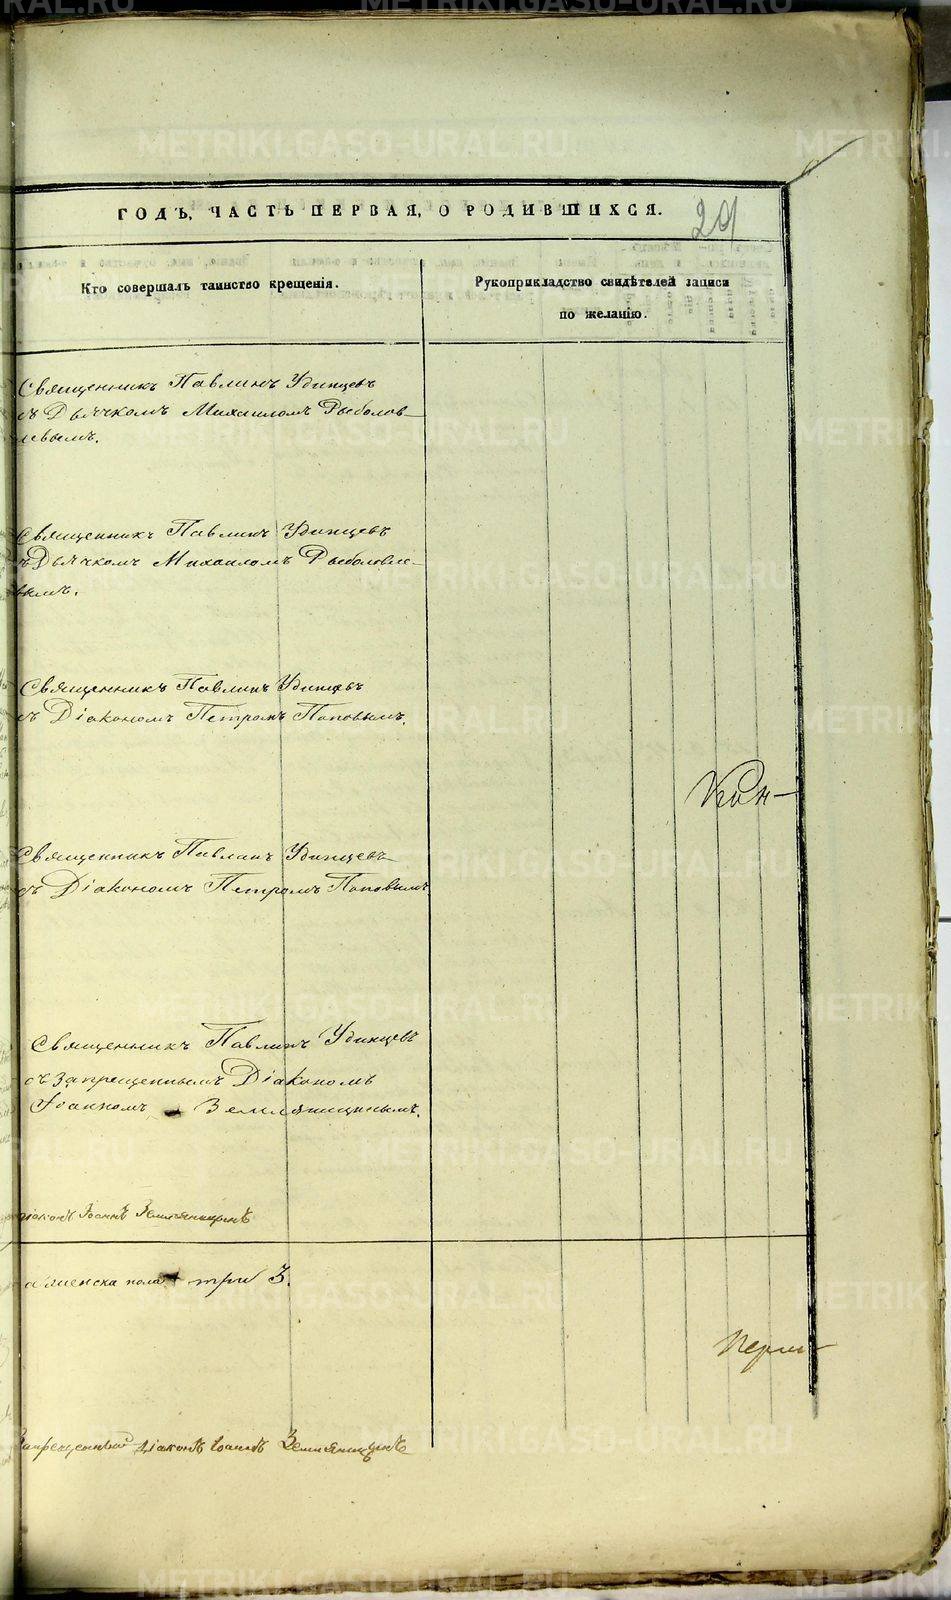 ГОДЪ, ЧАСТЬ ПЕРВАЯ, О РОДИВШИХСЯ.
29
Кто совершалъ таинство крещенія.
Рукоприкладство свидѣтелей записи
по желанію.
Священникъ Павлинъ Удинцевъ
съ Дьячкомъ Михаиломъ Рыболов-
левымъ.
Священникъ Павлинъ Удинцевъ
съ Дьячкомъ Михаиломъ Рыболовле-
вымъ.
Священникъ Павлинъ Удинцевъ
съ Діакономъ Петромъ Поповымъ.
Священникъ Павлинъ Удинцевъ
съ Діакономъ Петромъ Поповымъ
Священникъ Павлинъ Удинцевъ
съ Запрещеннымъ Діакономъ
Іоанномъ Земляницынымъ.
діаконъ Іоаннъ Земляницынъ
а женска пола три 3.
Запрещенный діаконъ Іоаннъ Земляницынъ
METRIKI.GASO-URAL.RU